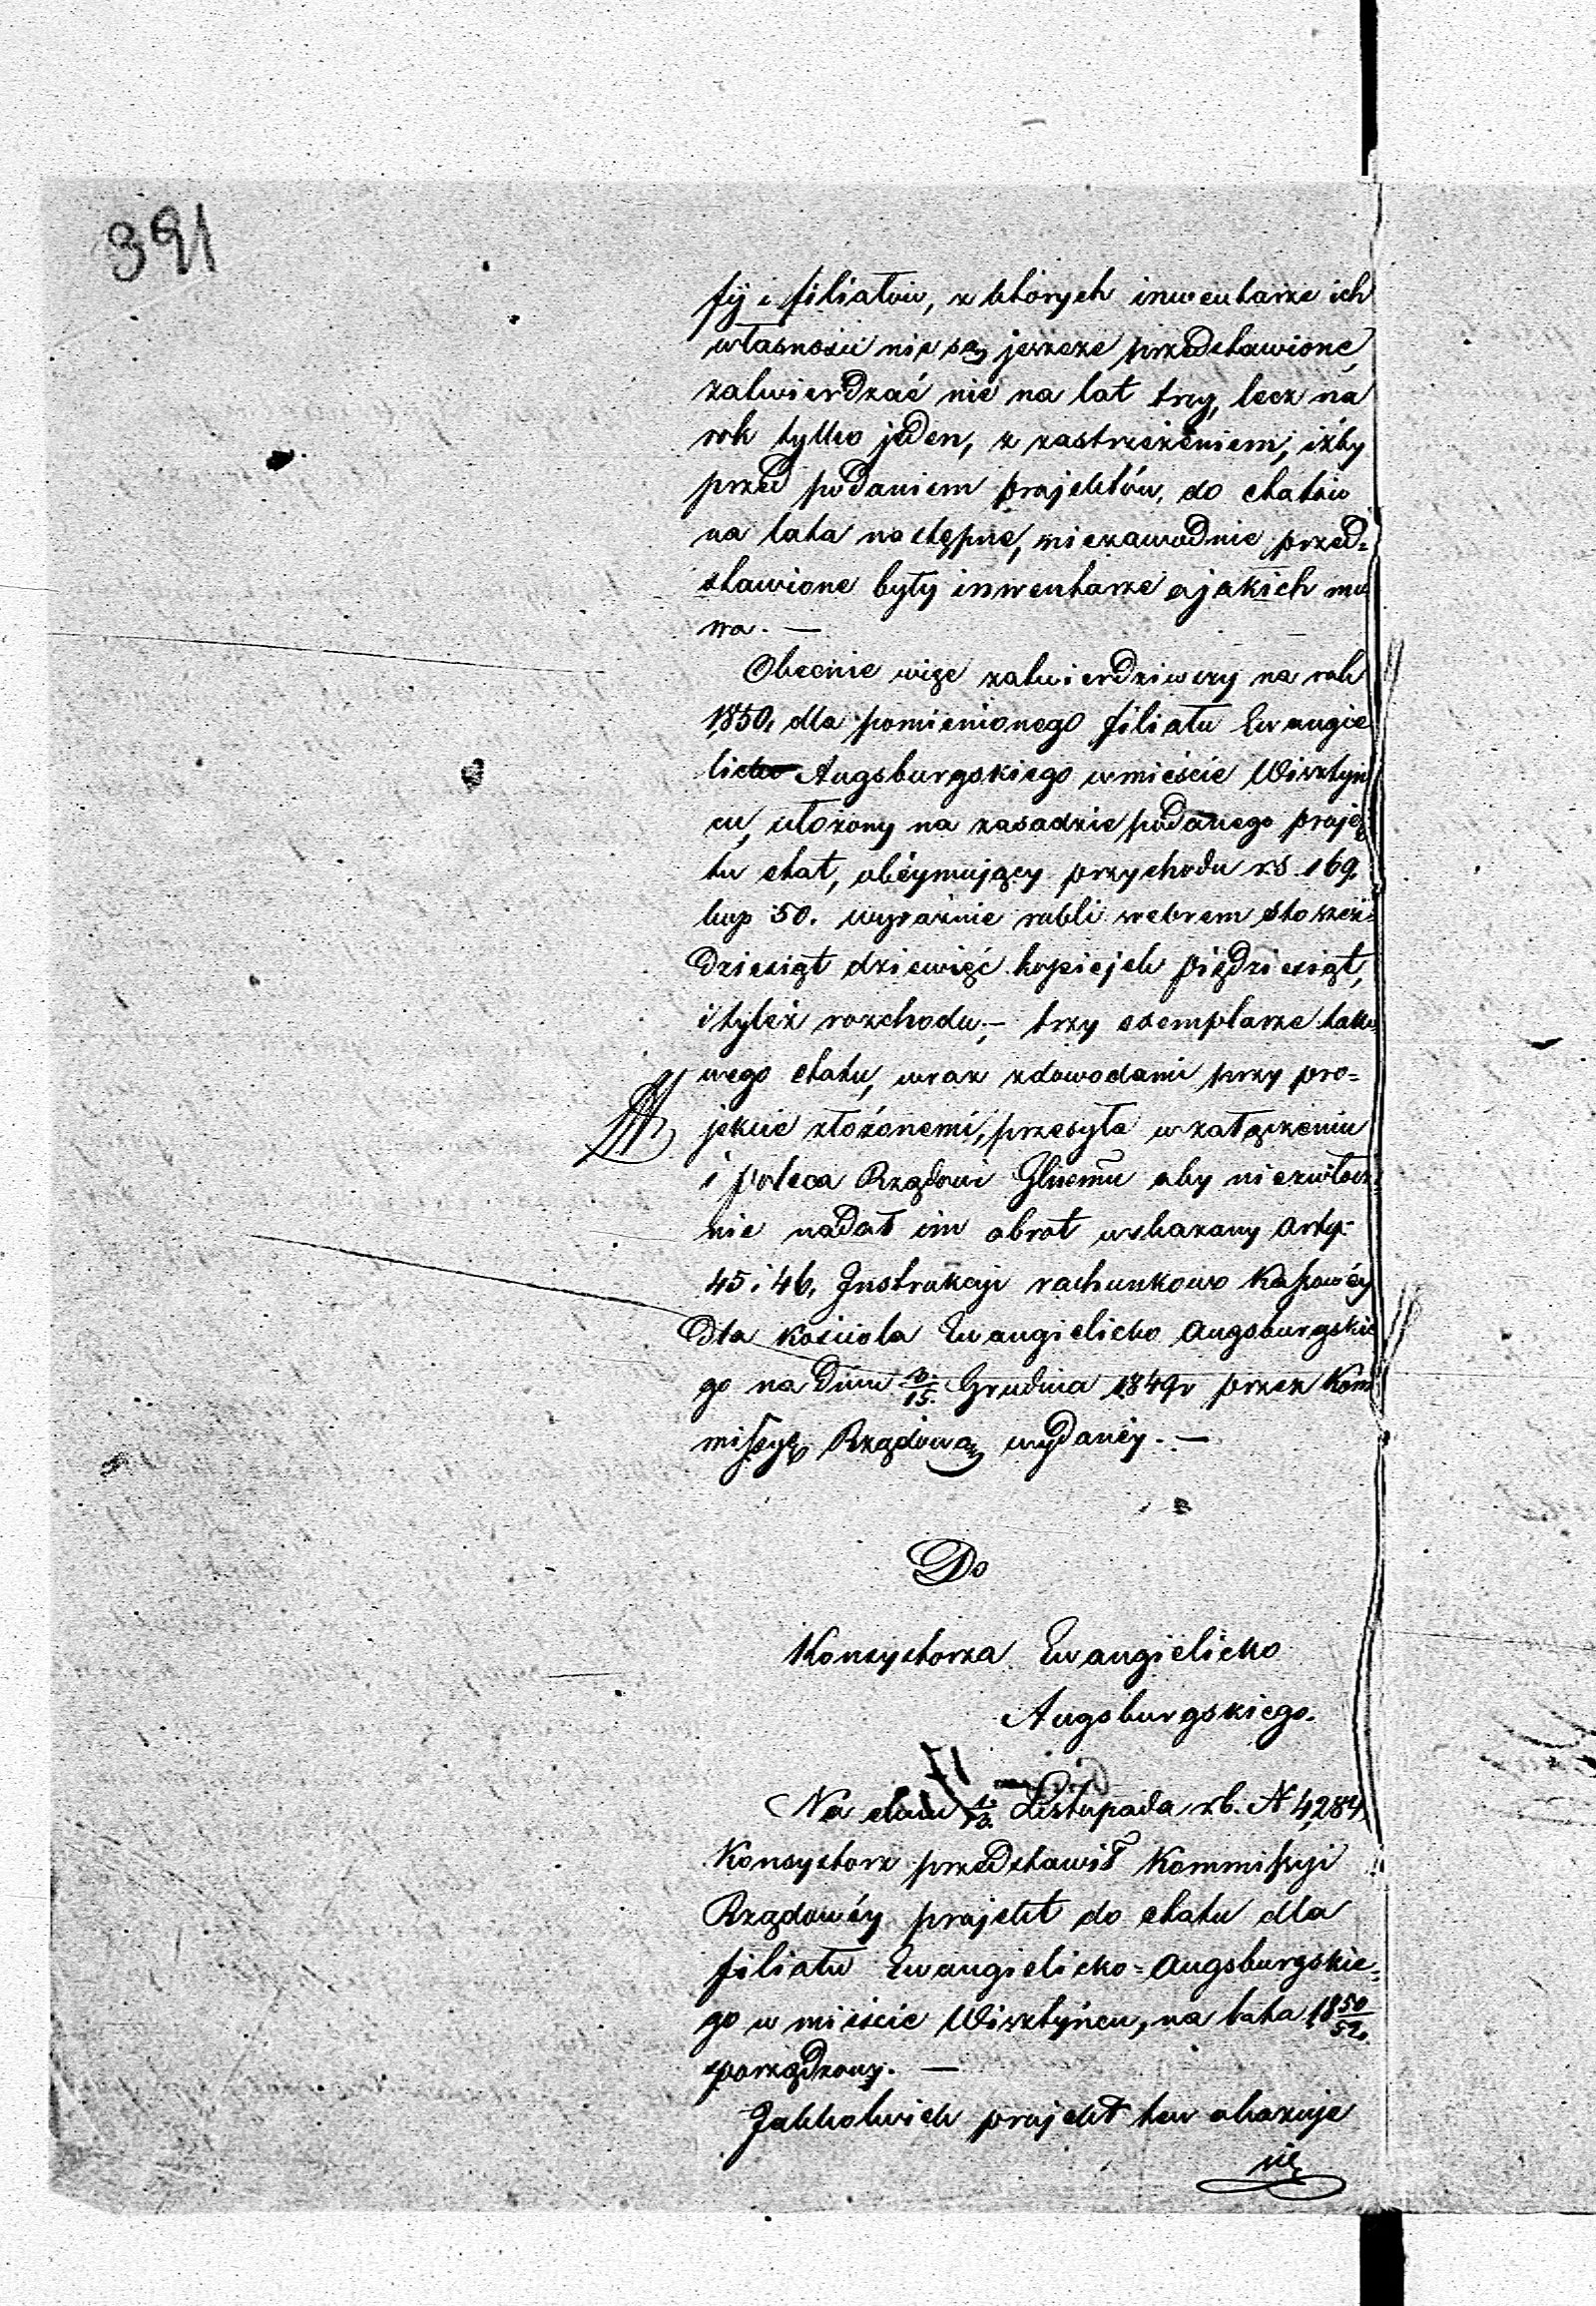 391
fij i filiałów, z których inwentarze ich
własności nie są jeszcze przedstawione,
zatwierdzać nie na lat trzy, lecz na
rok tylko jeden, z zastrzeżeniem, iżby
przed podaniem projektów, do etatów
na lata następne, niezawodnie przed=
stawione były inwentarze o jakich mo
wa. —
Obecnie więc zatwierdziwszy na rok
1850, dla pomienionego filiału Ewangie
licko Augsburgskiego w mieście Wisztyń
cu, ułożony na zasadzie podanego projek
tu etat, obéymujący przychodu rs. 169,
kop 50. wyraźnie rubli srebrem sto sześć=
dziesiąt dziewięć kopiejek pięćdziesiąt,
i tyleż rozchodu, – trzy exemplarze tako
wego etatu, wraz z dowodami przy pro=
jekcie złożonemi, przesyła w załączeniu
i poleca Rządowi Głnemu aby niezwłocz=
nie nadał im obrot wskazany arty:
45 i 46, Instrukcji rachunkowo Kassowéy
dla Kościoła Ewangielicko Augsburgskie
go na dniu /15. Grudnia 1849r przez Kom
missyę Rządową wydanéy. —
Do
Konsystorza Ewangielicko
Augsburgskiego.
17
Na dniu Listopada r.b. N 4,284,
Konsystorz przedstawił Kommissyi
Rządowéy projekt do etatu dla
filiału Ewangielicko=Augsburgskie=
go w mieście Wisztyńcu, na lata 1850/52.
sporządzony. —
Jakkolwiek projekt ten okazuje
się